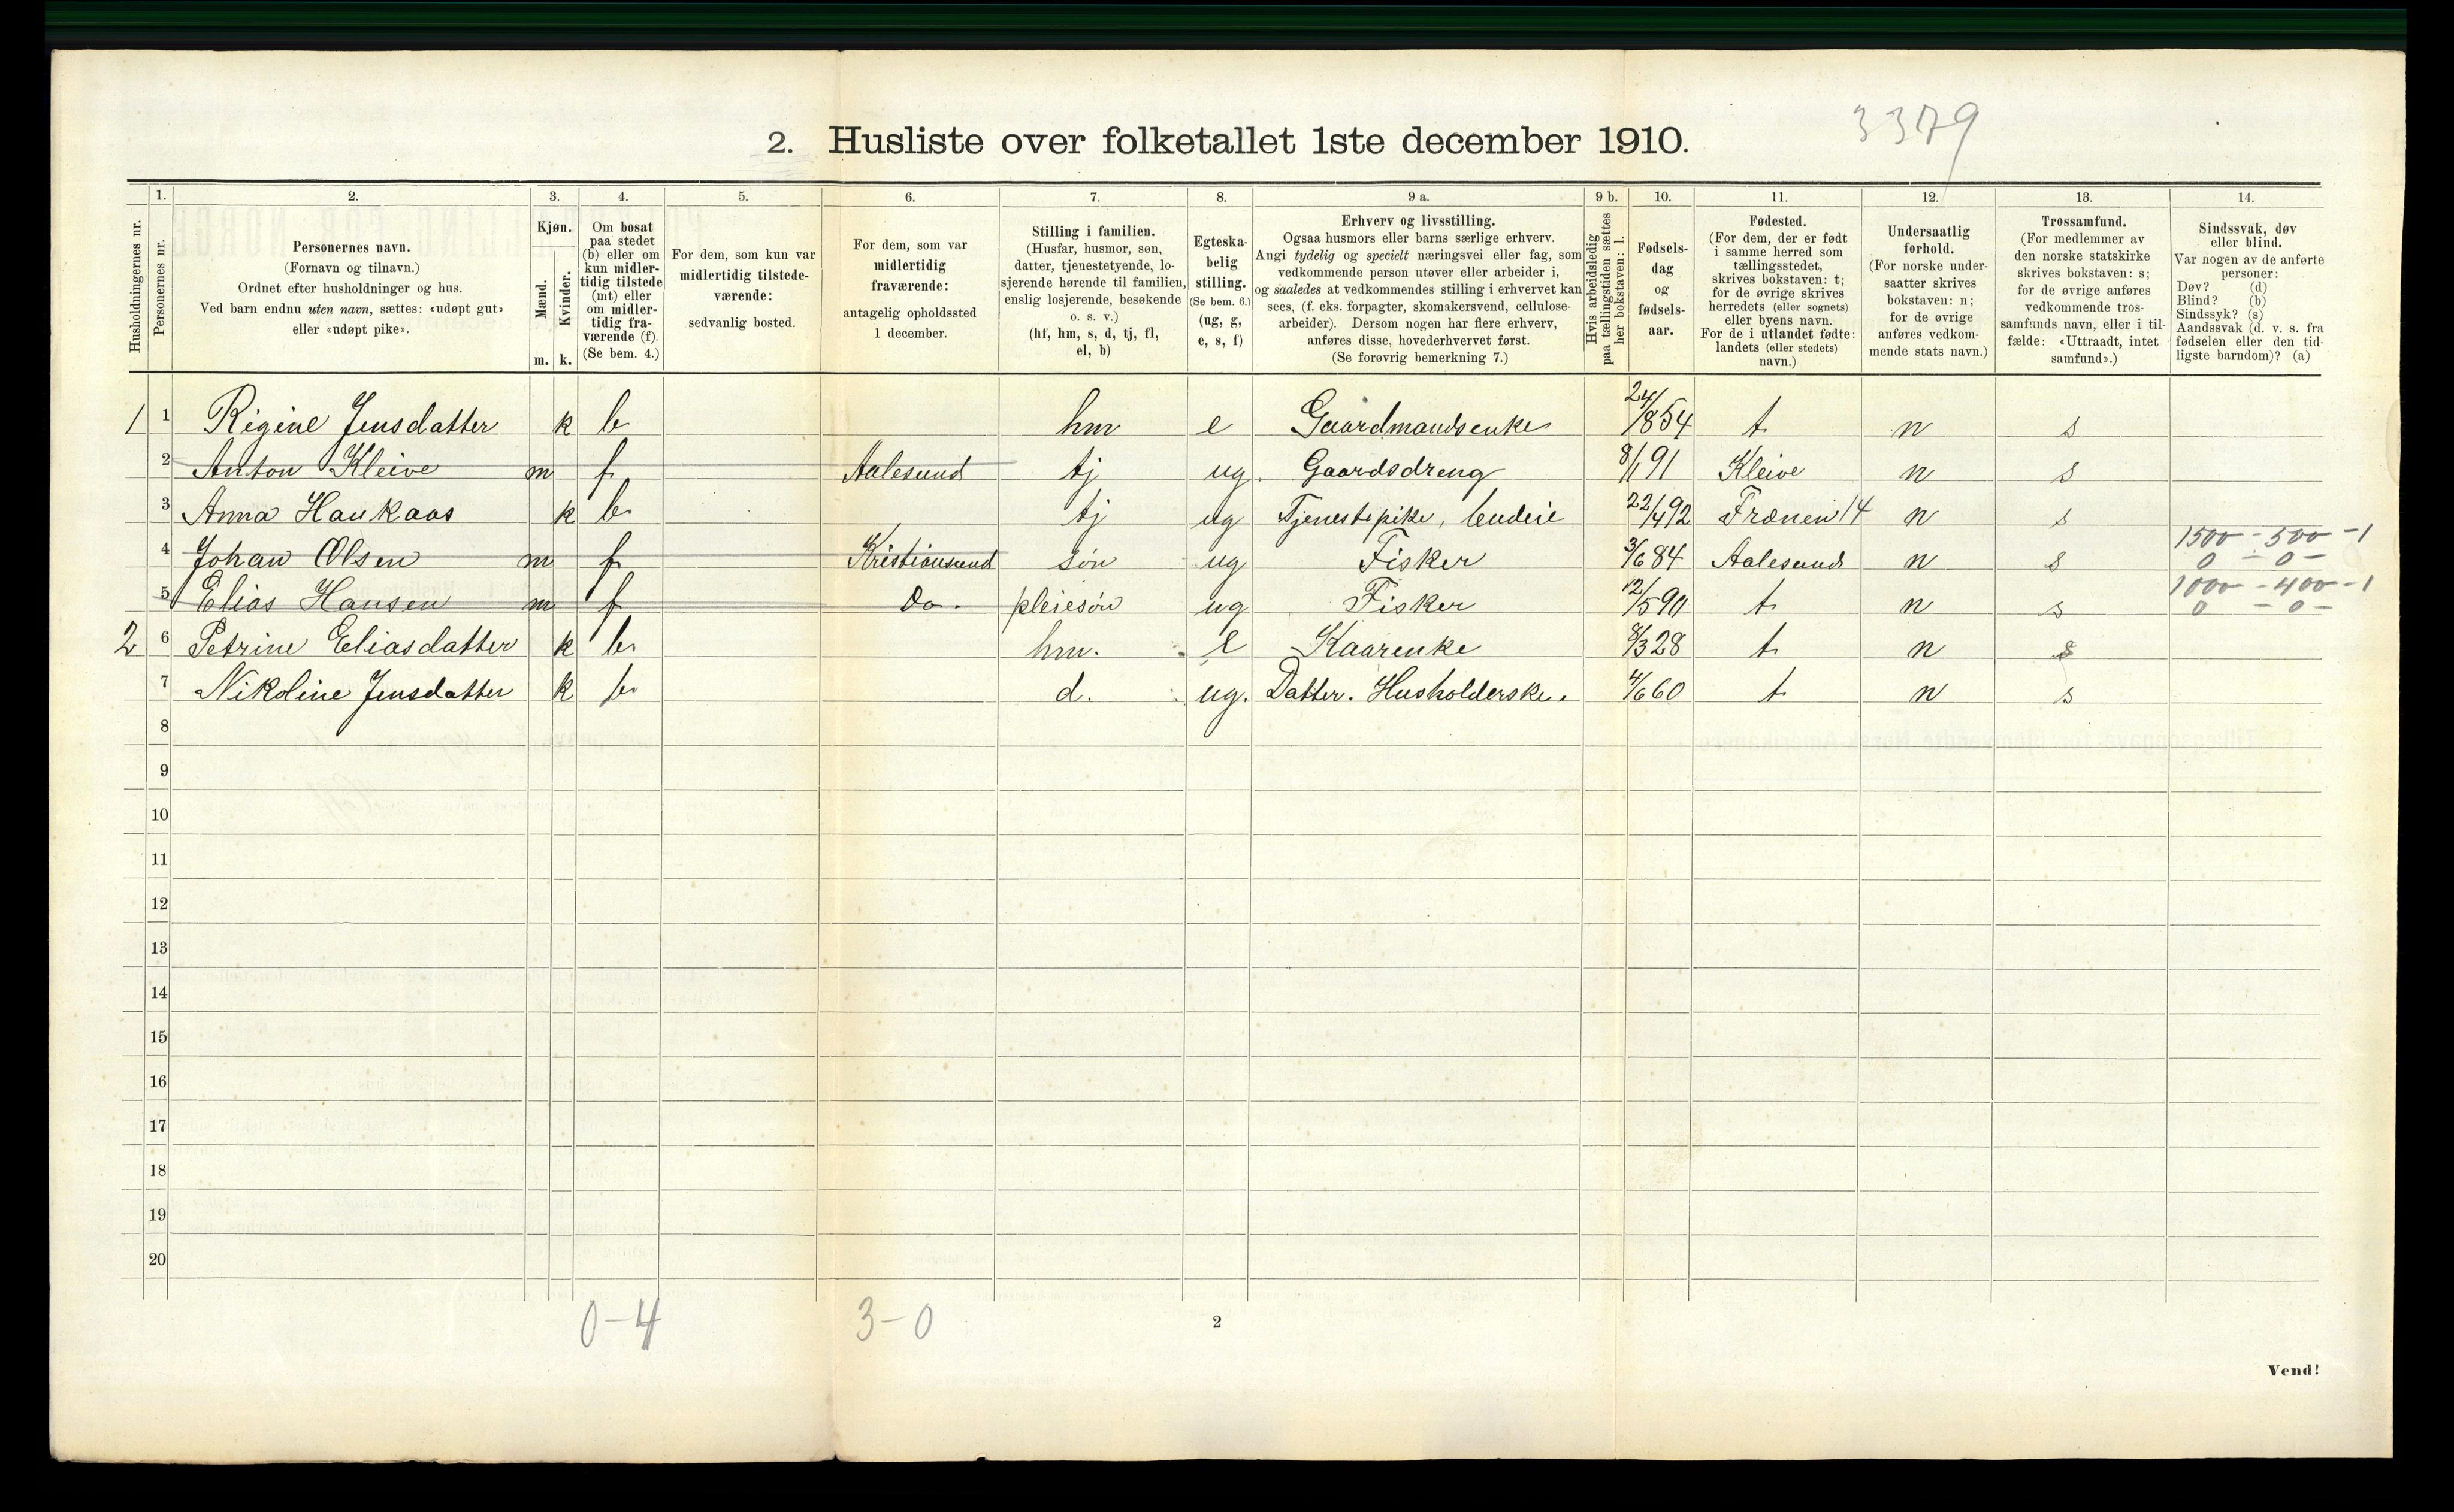 3379
2. Husliste over folketallet 1ste december 1910.
Husholdningernes nr.
1.
Personernes nr.
2.
Personernes navn.
(Fornavn og tilnavn.)
Ordnet efter husholdninger og hus.
Ved barn endnu uten navn, sættes: «udøpt gut»
eller «udøpt pike».
3.
Kjøn.
Mænd.
Kvinder.
m. k.
4.
Om bosat
paa stedet
(b) eller om
kun midler-
tidig tilstede
(mt) eller
om midler-
tidig fra-
værende (f).
(Se bem. 4.)
5.
For dem, som kun var
midlertidig tilstede-
værende:
sedvanlig bosted.
6.
For dem, som var
midlertidig
fraværende:
antagelig opholdssted
1 december.
7.
Stilling i familien.
(Husfar, husmor, søn,
datter, tjenestetyende, lo-
sjerende hørende til familien,
enslig losjerende, besøkende
o. s. v.)
(hf, hm, s, d, tj, fl,
el, b)
8.
Egteska-
belig
stilling.
(Se bem. 6.)
(ug, g,
e, s, f)
9 a.
Erhverv og livsstilling.
Ogsaa husmors eller barns særlige erhverv.
Angi tydelig og specielt næringsvei eller fag, som
vedkommende person utøver eller arbeider i,
og saaledes at vedkommendes stilling i erhvervet kan
sees, (f. eks. forpagter, skomakersvend, cellulose-
arbeider). Dersom nogen har flere erhverv,
anføres disse, hovederhvervet først.
(Se forøvrig bemerkning 7.)
9 b.
Hvis arbeidsledig
paa tællingstiden sættes
her bokstaven: l.
10.
Fødsels-
dag
og
fødsels-
aar.
11.
Fødested.
(For dem, der er født
i samme herred som
tællingsstedet,
skrives bokstaven: t;
for de øvrige skrives
herredets (eller sognets)
eller byens navn.
For de i utlandet fødte:
landets (eller stedets)
navn.)
12.
Undersaatlig
forhold.
(For norske under-
saatter skrives
bokstaven: n;
for de øvrige
anføres vedkom-
mende stats navn.)
13.
Trossamfund.
(For medlemmer av
den norske statskirke
skrives bokstaven: s;
for de øvrige anføres
vedkommende tros-
samfunds navn, eller i til-
fælde: «Uttraadt, intet
samfund».)
14.
Sindssvak, døv
eller blind.
Var nogen av de anførte
personer:
Døv? (d)
Blind? (b)
Sindssyk? (s)
Aandssvak (d. v. s. fra
fødselen eller den tid-
ligste barndom)? (a)
1 1 Regine Jensdatter k b hm e Gaardmandsenke 24/1 854 t n s
2 Anton Kleive m f Aalesund tj ug. Gaardsdreng 8/1 91 Kleive n s
3 Anna Haukaas k b tj ug Tjenestepike, budeie 22/4 92 Frænen 14 n s
4 Johan Olsen m f Kristiansund søn ug Fisker 3/6 84 Aalesund n s 1500 - 500 - 1
0 - 0 -
5 Elias Hansen m f Do. pleiesøn ug Fisker 12/5 90 t n s 1000 - 400 - 1
0 - 0 -
2 6 Petrine Eliasdatter k b hm. e Kaarenke 8/3 28 t n s
7 Nikoline Jensdatter k b d. ug. Datter. Husholderske. 4/6 60 t n s
8
9
10
11
12
13
14
15
16
17
18
19
20
0-4 3-0
2
Vend!